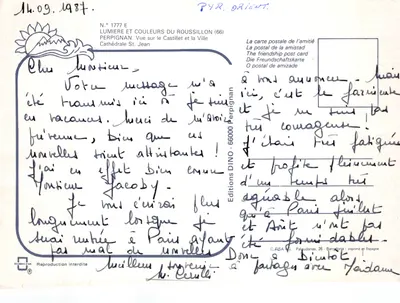 14.09.1987.
PYR. ORIENT.
N.° 1777 E
LUMIERE ET COULEURS DU ROUSSILLON (66)
PERPIGNAN Vue sur le Castillet et la Ville
Cathédrale St. Jean
La carte postale de l'amitié
La postal de la amistad
The friendship post card
Die Freundschaftskarte
O postal da amizade
Editions DINO - 66000 Perpignan
Cher Monsieur,
Votre message m'a
été transmis ici où je suis
en vacances. Merci de m'avoir
prévenue, bien que ces
nouvelles soient attristantes !
J'ai en effet bien connu
Monsieur Jacoby.
Je vous écrirai plus
longuement lorsque je
serai rentrée à Paris ayant
pas mal de nouvelles
à vous annoncer. Mais
ici, c'est le farniente
et je ne suis pas
très courageuse.
J'étais très fatiguée
et profite pleinement
d'un temps très
agréable alors
qu'à Paris juillet
et Août n'ont pas
été formidables.
Donc à bientôt !
Meilleurs souvenirs à partager avec Madame
reproduction interdite